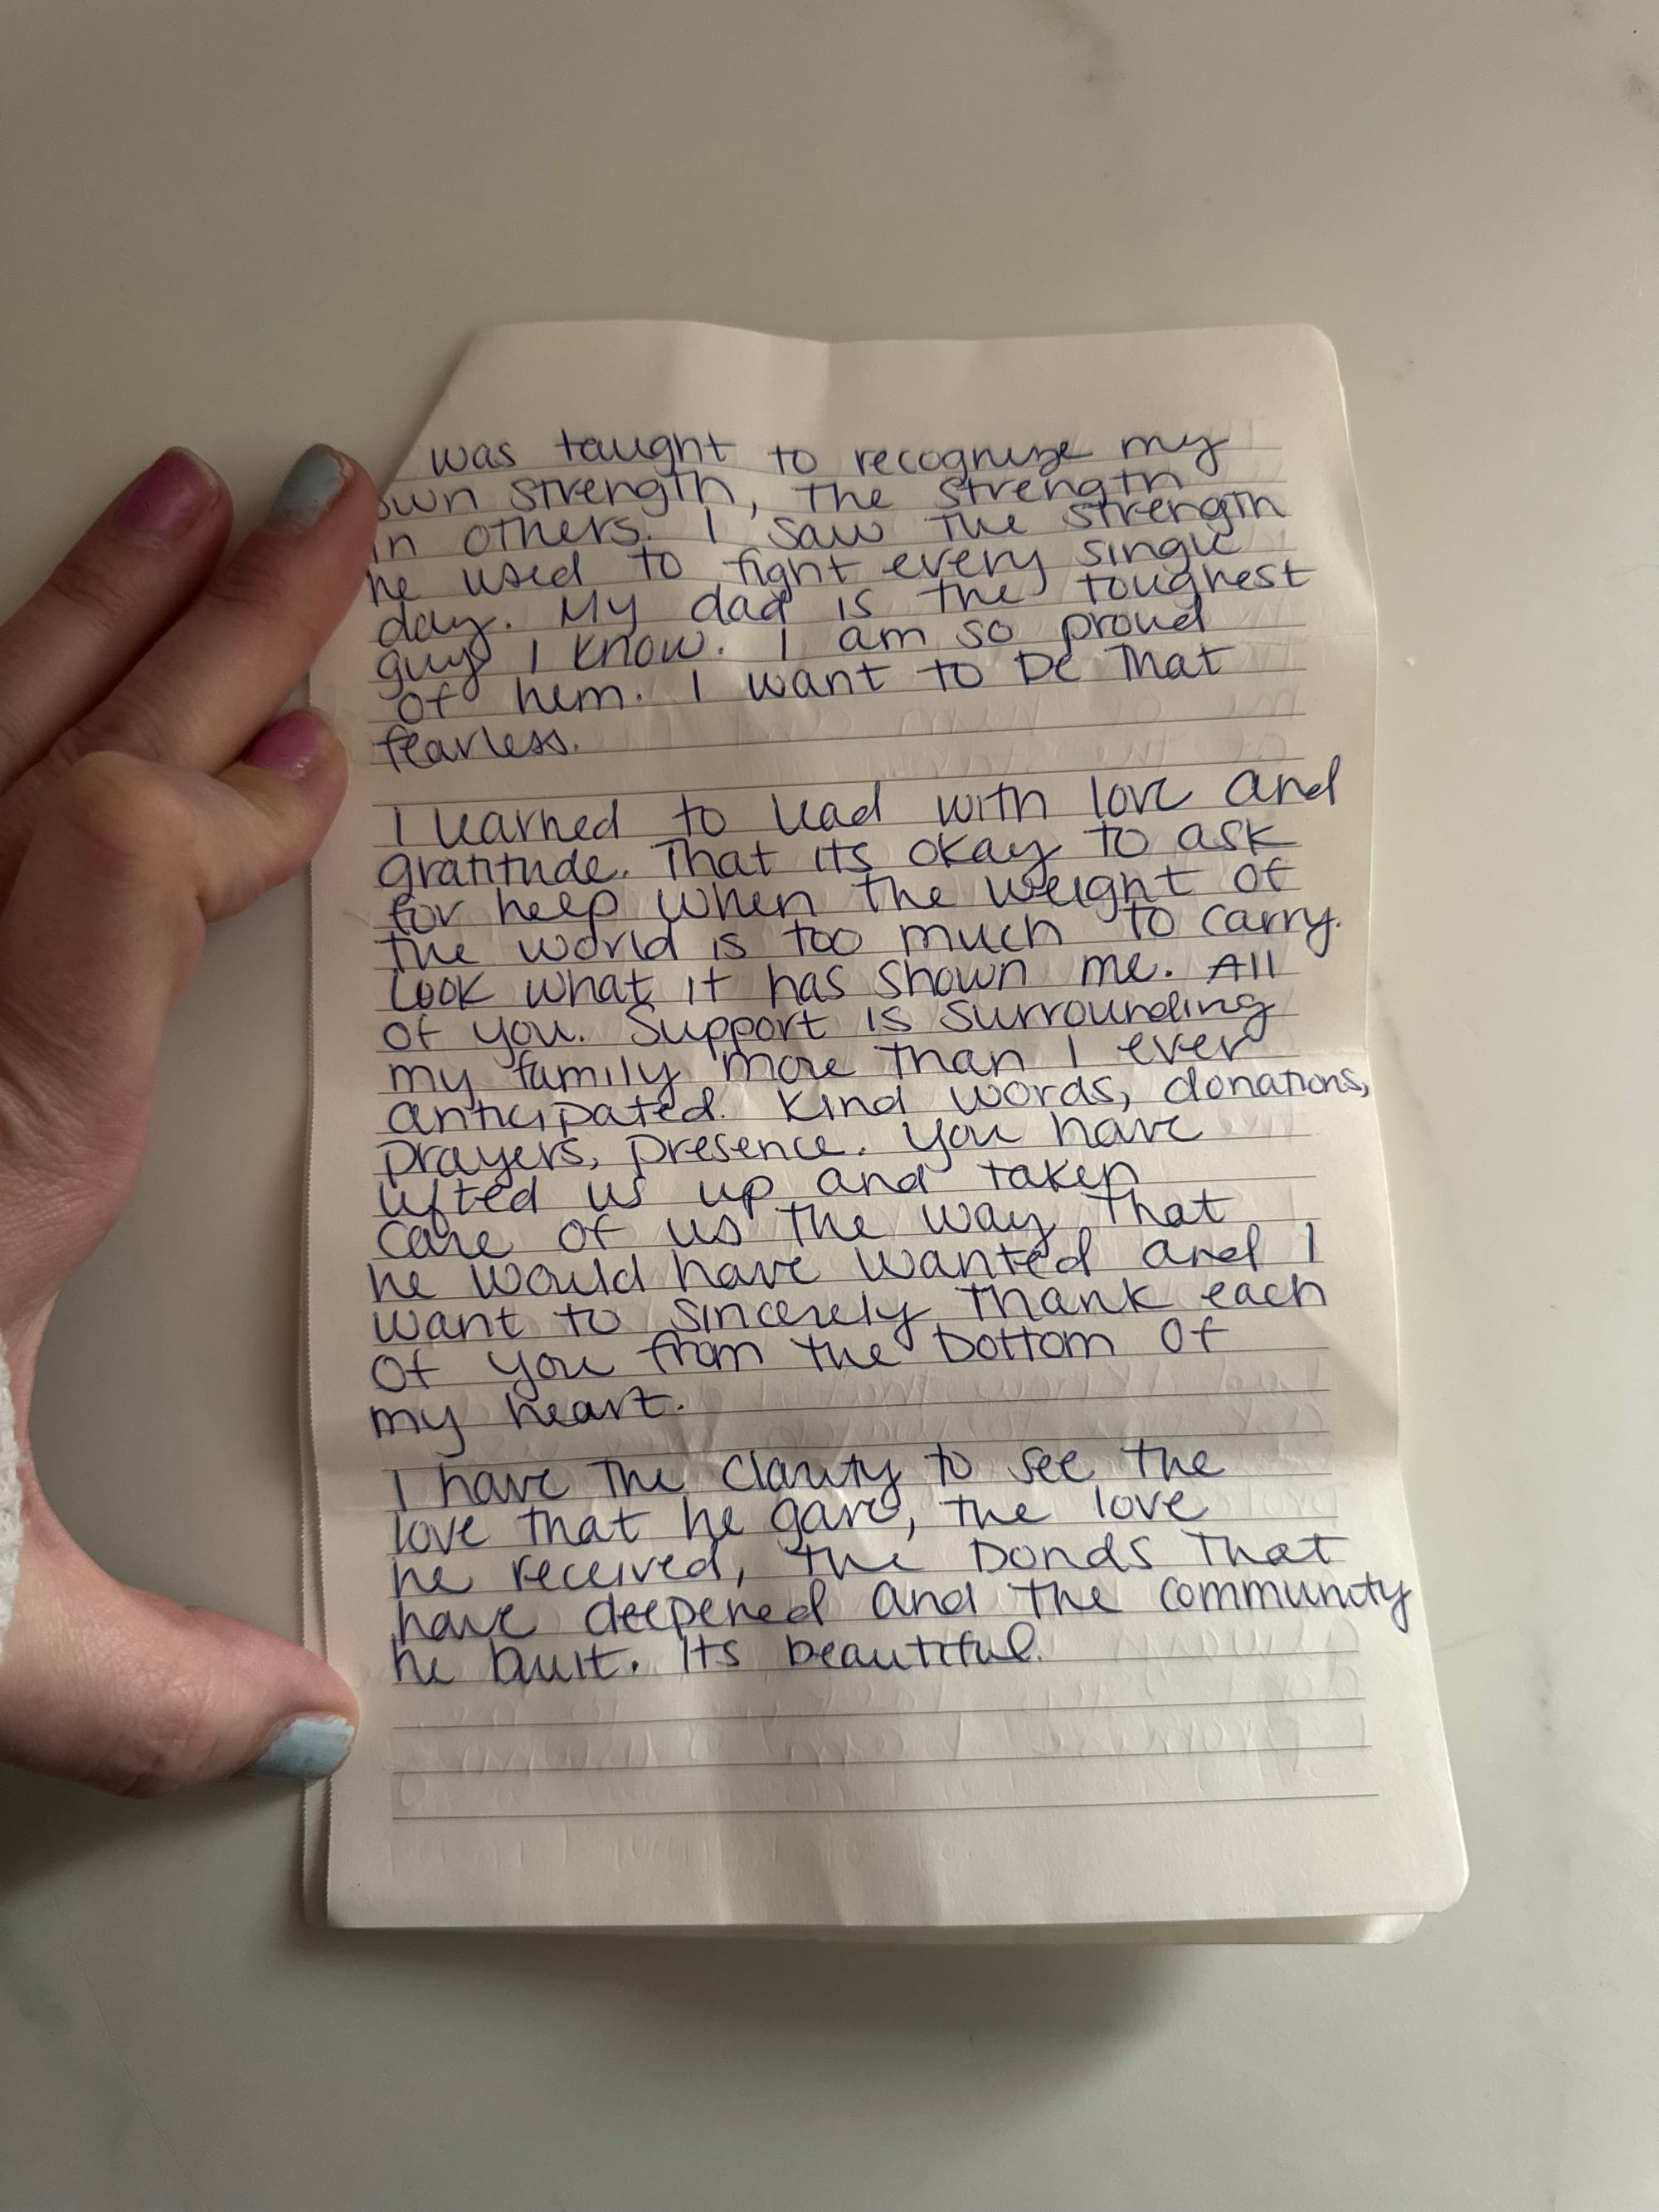 was taught to recognize my
own strength, the strength
in others. I saw the strength
he used to fight every single
day. My dad is the toughest
guy I know. I am so proud
of him. I want to be that
fearless.
I learned to lead with love and
gratitude. That its okay to ask
for help when the weight of
the world is too much to carry.
Look what it has shown me. All
of you. Support is surrounding
my family more than I ever
anticipated. Kind words, donations,
prayers, presence. You have
lifted us up and taken
care of us the way that
he would have wanted and I
want to sincerely thank each
of you from the bottom of
my heart.
I have the clarity to see the
love that he gave, the love
he received, the bonds that
have deepened and the community
he built. Its beautiful.